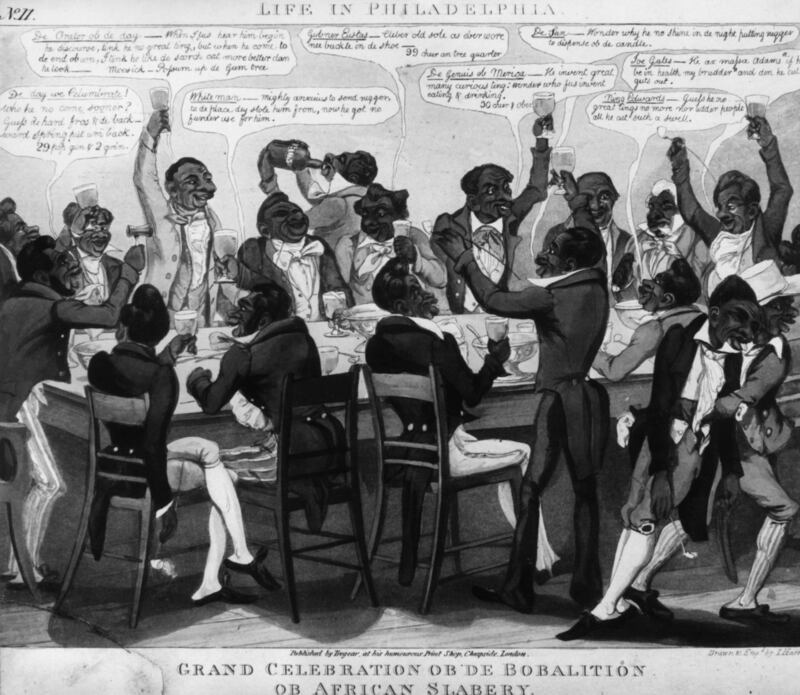 No. 11.
LIFE IN PHILADELPHIA.
De Orator ob de day — When I fus hear him begin
he discourse, tink he no great ting, but when he come to
de end ob um, I tink he like de sarch cat more better dan
he look — Moosick — Possum up de Gum tree
Gubner Eustas — Cleber old sole as eber wore
nee buckle in de shoe
99 cheer an tree quarter
De Sun — Wonder why he no shine in de night putting nigger
to dispense ob de candle.
De Genius ob Merica — He invent great
many curious ting: wonder who fus invent
eating & drinking.
30 cheer &
Joe Gales — He ax massa Adams if he
be in health my brudder and den he cut
guts out.
De day we Celumbrate!
Who he no come sooner?
Guess de hard frog & de back-
ward Spring put um back.
29 pop gun & 2 grin.
White man — mighty anxious to send nigger,
to de place dey stole him from, now he got no
furder use for him.
King Edwards — Guess he no
great tings no more nor udder people
all he cut such a swell.
Published by Tregear, at his humourous Print Shop, Cheapside, London.
Drawn & Engd. by I.
GRAND CELEBRATION OB DE BOBALITION
OB AFRICAN SLABERY.